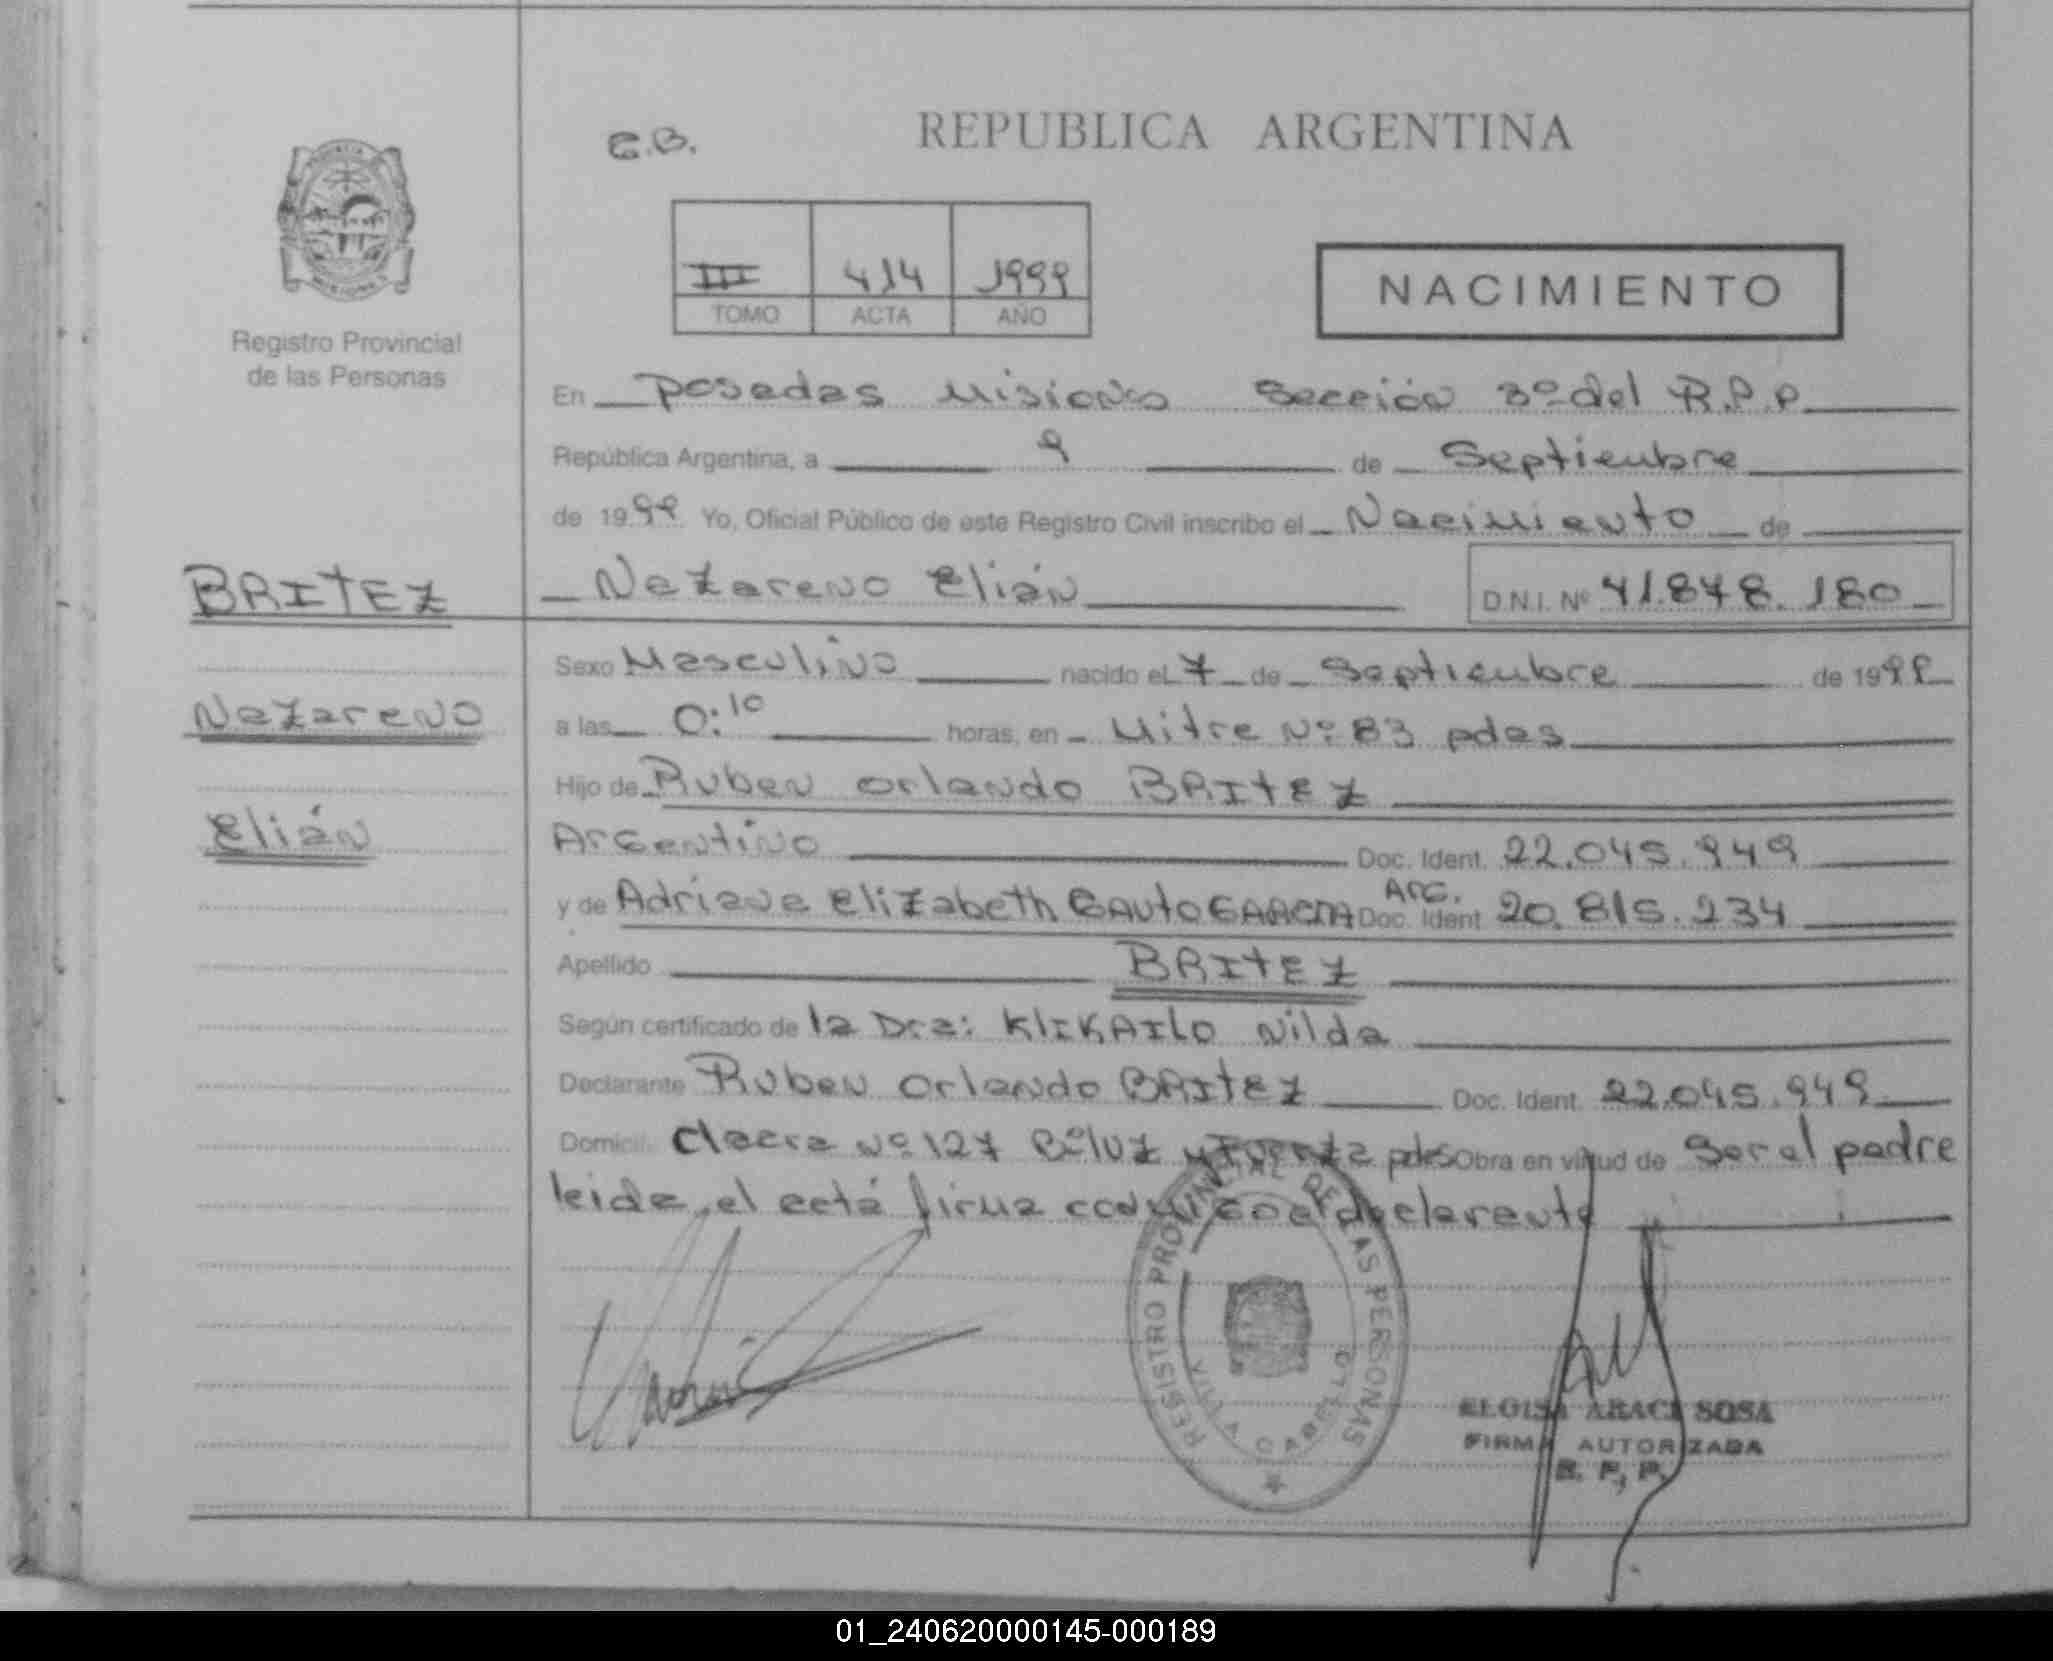 E.B.
REPUBLICA ARGENTINA
III 414 1999
TOMO ACTA AÑO
NACIMIENTO
Registro Provincial
de las Personas
En Posadas Misiones Sección 3º del R.P.P.
República Argentina, a 9 de Septiembre
de 1999 Yo, Oficial Público de este Registro Civil inscribo el Nacimiento de
BRITEZ
Nazareno Elián D.N.I. Nº 41.878.180
Sexo Masculino nacido el 7 de Septiembre de 1999
Nazareno
a las 0:10 horas, en Mitre Nº 83 pdas
Hijo de Ruben Orlando BRITEZ
Elián
Argentino Doc. Ident. 22.045.949
y de Adriana Elizabeth GAUTO Arg. Doc. Ident. 20.815.234
Apellido BRITEZ
Según certificado de la Dra: KLIKAILO Nilda
Declarante Ruben Orlando BRITEZ Doc. Ident. 22.045.949
Domicil. Chacra Nº 127 Bº luz y Fuerza pdas Obra en virtud de Ser el padre
leida el acta firma conmigo el declarante
REGISTRO PROVINCIAL DE LAS PERSONAS
VILLA CABELLO
ELOISA ARACI SOSA
FIRMA AUTORIZADA
R. P. P.
01_240620000145-000189